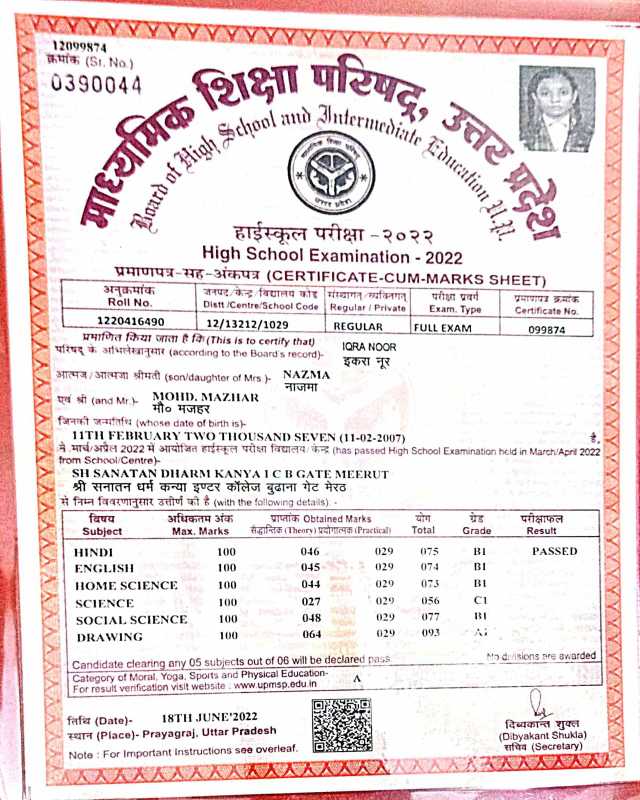 12099874
क्रमांक (Sr. No.)
0390044
माध्यमिक शिक्षा परिषद्, उत्तर प्रदेश
Board of High School and Intermediate Education U.P.
हाईस्कूल परीक्षा -२०२२
High School Examination - 2022
प्रमाणपत्र-सह-अंकपत्र (CERTIFICATE-CUM-MARKS SHEET)
अनुक्रमांक जनपद/केन्द्र/विद्यालय कोड संस्थागत/व्यक्तिगत परीक्षा प्रवर्ग प्रमाणपत्र क्रमांक
Roll No. Distt/Centre/School Code Regular / Private Exam. Type Certificate No.
1220416490 12/13212/1029 REGULAR FULL EXAM 099874
प्रमाणित किया जाता है कि (This is to certify that) IQRA NOOR
परिषद् के अभिलेखानुसार (according to the Board's record)- इकरा नूर
आत्मज/आत्मजा श्रीमती (son/daughter of Mrs.)- NAZMA
नाजमा
एवं श्री (and Mr.)- MOHD. MAZHAR
मौ० मजहर
जिनकी जन्मतिथि (whose date of birth is)-
11TH FEBRUARY TWO THOUSAND SEVEN (11-02-2007) है,
ने मार्च/अप्रैल 2022 में आयोजित हाईस्कूल परीक्षा विद्यालय/केन्द्र (has passed High School Examination held in March/April 2022
from School/Centre)-
SH SANATAN DHARM KANYA I C B GATE MEERUT
श्री सनातन धर्म कन्या इण्टर कॉलेज बुढाना गेट मेरठ
से निम्न विवरणानुसार उत्तीर्ण की है (with the following details). -
विषय अधिकतम अंक प्राप्तांक Obtained Marks योग ग्रेड परीक्षाफल
Subject Max. Marks सैद्धान्तिक (Theory) प्रयोगात्मक (Practical) Total Grade Result
HINDI 100 046 029 075 B1 PASSED
ENGLISH 100 045 029 074 B1
HOME SCIENCE 100 044 029 073 B1
SCIENCE 100 027 029 056 C1
SOCIAL SCIENCE 100 048 029 077 B1
DRAWING 100 064 029 093 A1
Candidate clearing any 05 subjects out of 06 will be declared pass No divisions are awarded
Category of Moral, Yoga, Sports and Physical Education- A
For result verification visit website : www.upmsp.edu.in
तिथि (Date)- 18TH JUNE'2022
स्थान (Place)- Prayagraj, Uttar Pradesh
दिब्यकान्त शुक्ल
(Dibyakant Shukla)
सचिव (Secretary)
Note : For Important Instructions see overleaf.